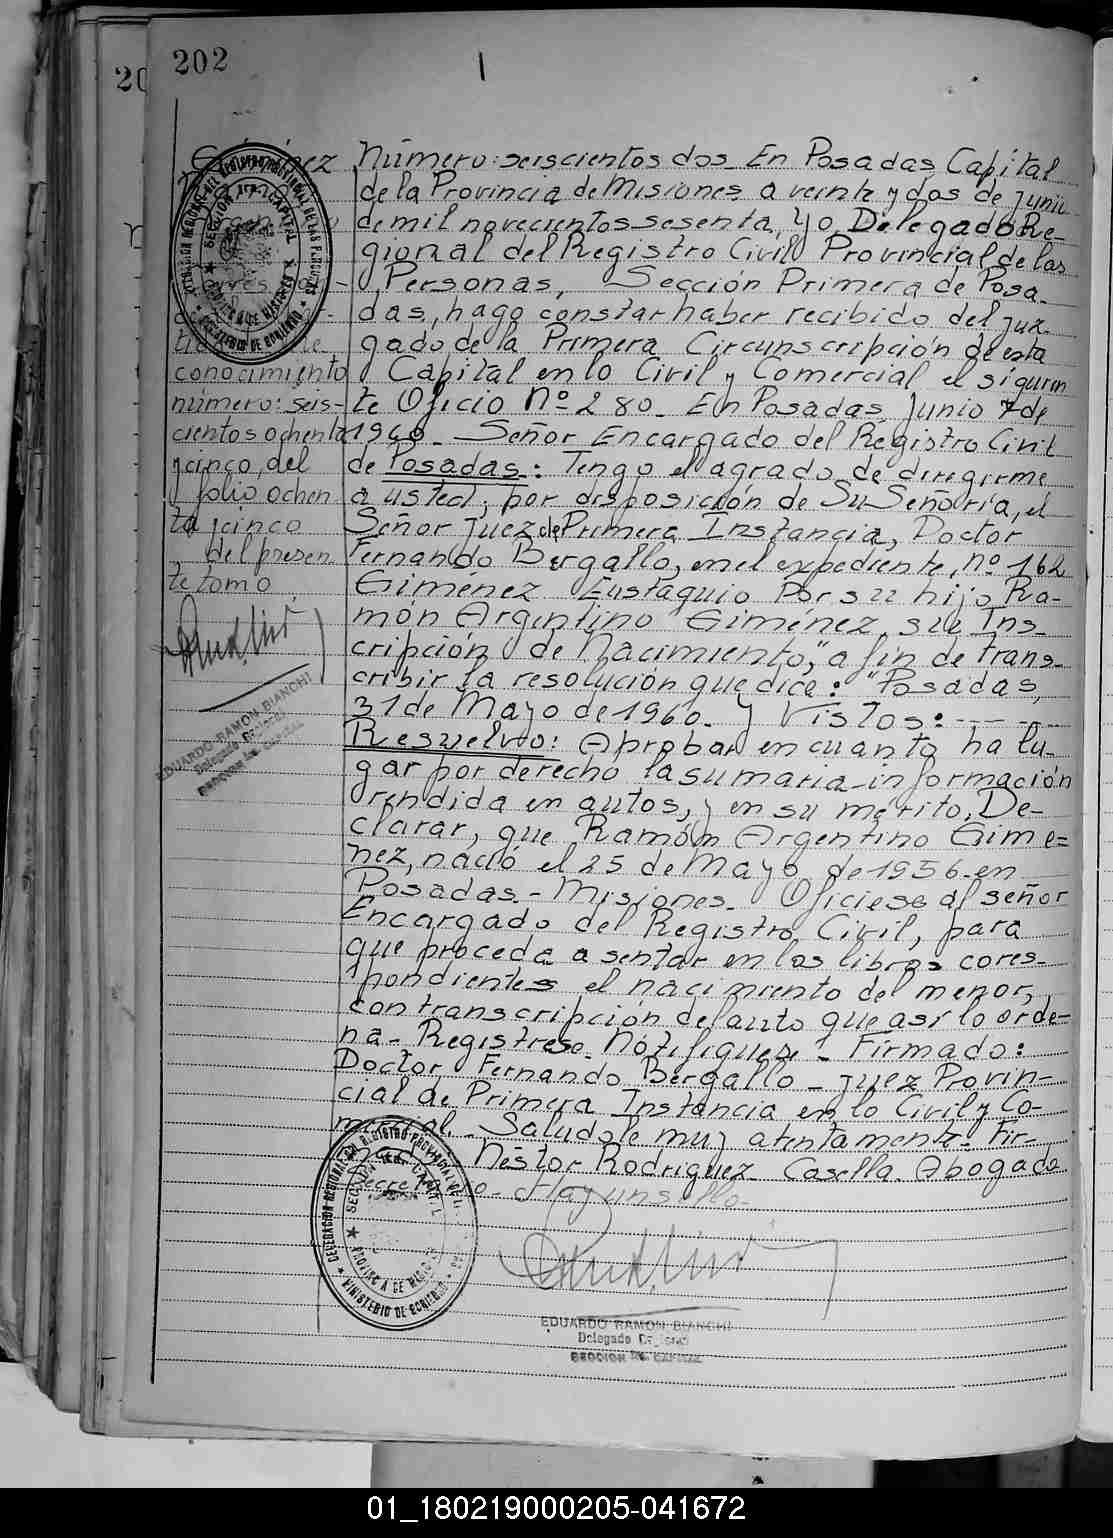 202
Número: seiscientos dos. En Posadas, Capital
de la Provincia de Misiones, a veinte y dos de junio
de mil novecientos sesenta, Yo, Delegado Re-
gional del Registro Civil Provincial de las
Personas, Sección Primera de Posa-
das, hago constar haber recibido del juz-
gado de la Primera Circunscripción de esta
Capital en lo Civil y Comercial el siguien
te Oficio Nº 280. En Posadas, Junio 7 de
1960. Señor Encargado del Registro Civil
de Posadas: Tengo el agrado de diregirme
a usted, por disposición de Su Señoría, el
Señor Juez de Primera Instancia, Doctor
Fernando Bergallo, en el expediente, nº 162
Giménez Eustaquio por su hijo Ra-
món Argentino Giménez su Ins-
cripción de Nacimiento," a fin de trans-
cribir la resolución que dice: "Posadas,
31 de Mayo de 1960. Y Vistos: - - - - -
Resuelvo: Aprobar en cuanto ha lu-
gar por derecho la sumaria información
rendida en autos, y en su mérito, De-
clarar, que Ramón Argentino Gime=
nez, nació el 25 de Mayo de 1956 en
Posadas - Misiones. Ofíciese al señor
Encargado del Registro Civil, para
que proceda a sentar en los libros cores-
pondientes el nacimiento del menor,
con transcripción del auto que así lo orde-
na. Registrese. Notifiquese. Firmado:
Doctor Fernando Bergallo - Juez Provin-
cial de Primera Instancia en lo Civil y Co-
mercial. Saludole muy atentamente. Fir-
Nestor Rodriguez Casella. Abogado
Secretario. Hay un sello.
conocimiento
número: seis-
cientos ochenta
y cinco, del
folio ochen
ta y cinco
del presen
te tomo.
EDUARDO RAMON BIANCHI
Delegado Regional
SECCION 1ra. CAPITAL
DELEGACION REGIONAL DEL REGISTRO PROVINCIAL DE LAS PERSONAS
SECCION 1ra. CAPITAL
PROVINCIA DE MISIONES
MINISTERIO DE GOBIERNO
DELEGACION REGIONAL DEL REGISTRO PROVINCIAL DE
PROVINCIA DE MISIONES
MINISTERIO DE GOBIERNO
EDUARDO RAMON BIANCHI
Delegado Regional
SECCION 1ra. CAPITAL
01_180219000205-041672